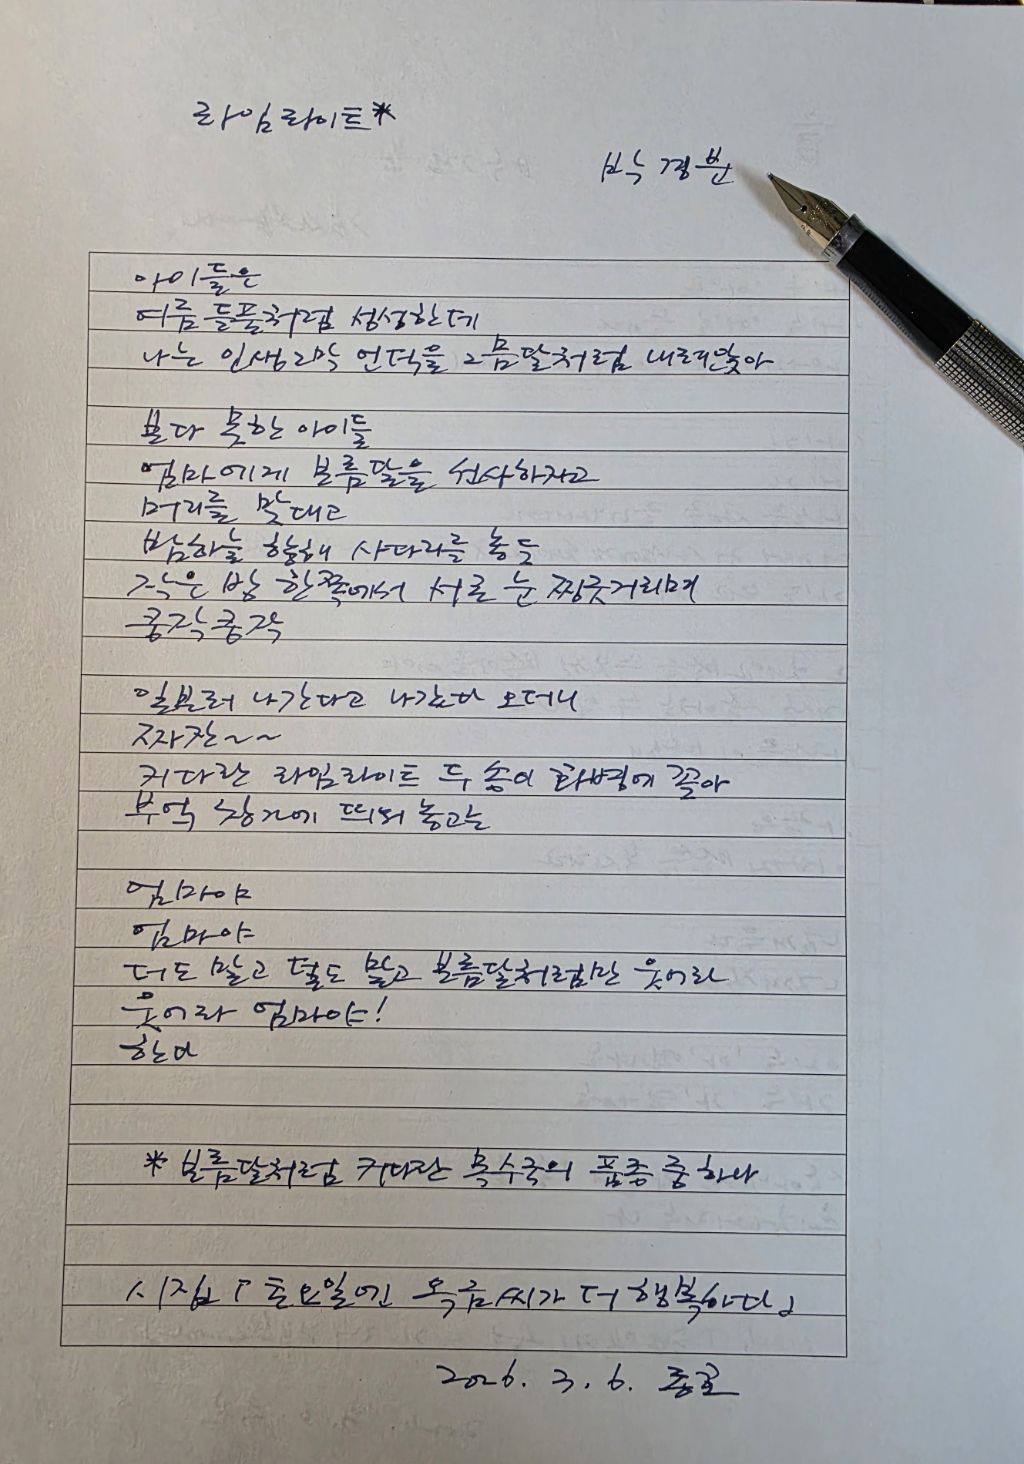 라임라이트*
박경분
아이들은
여름 들풀처럼 싱싱한데
나는 인생 2막 언덕을 그믐달처럼 내려앉아
보다 못한 아이들
엄마에게 보름달을 선사하자고
머리를 맞대고
밤하늘 향해 사다리를 놓듯
작은 방 한쪽에서 서로 눈 찡긋거리며
쿵작쿵작
일보러 나간다고 나갔다 오더니
짜잔~~
커다란 라임라이트 두 송이 화병에 꽂아
부엌 창가에 띄워 놓고는
엄마야
엄마야
더도 말고 덜도 말고 보름달처럼만 웃어라
웃어라 엄마야!
한다
* 보름달처럼 커다란 목수국의 품종 중 하나
시집 「토요일엔 옥금씨가 더 행복하다」
2026. 3. 6.